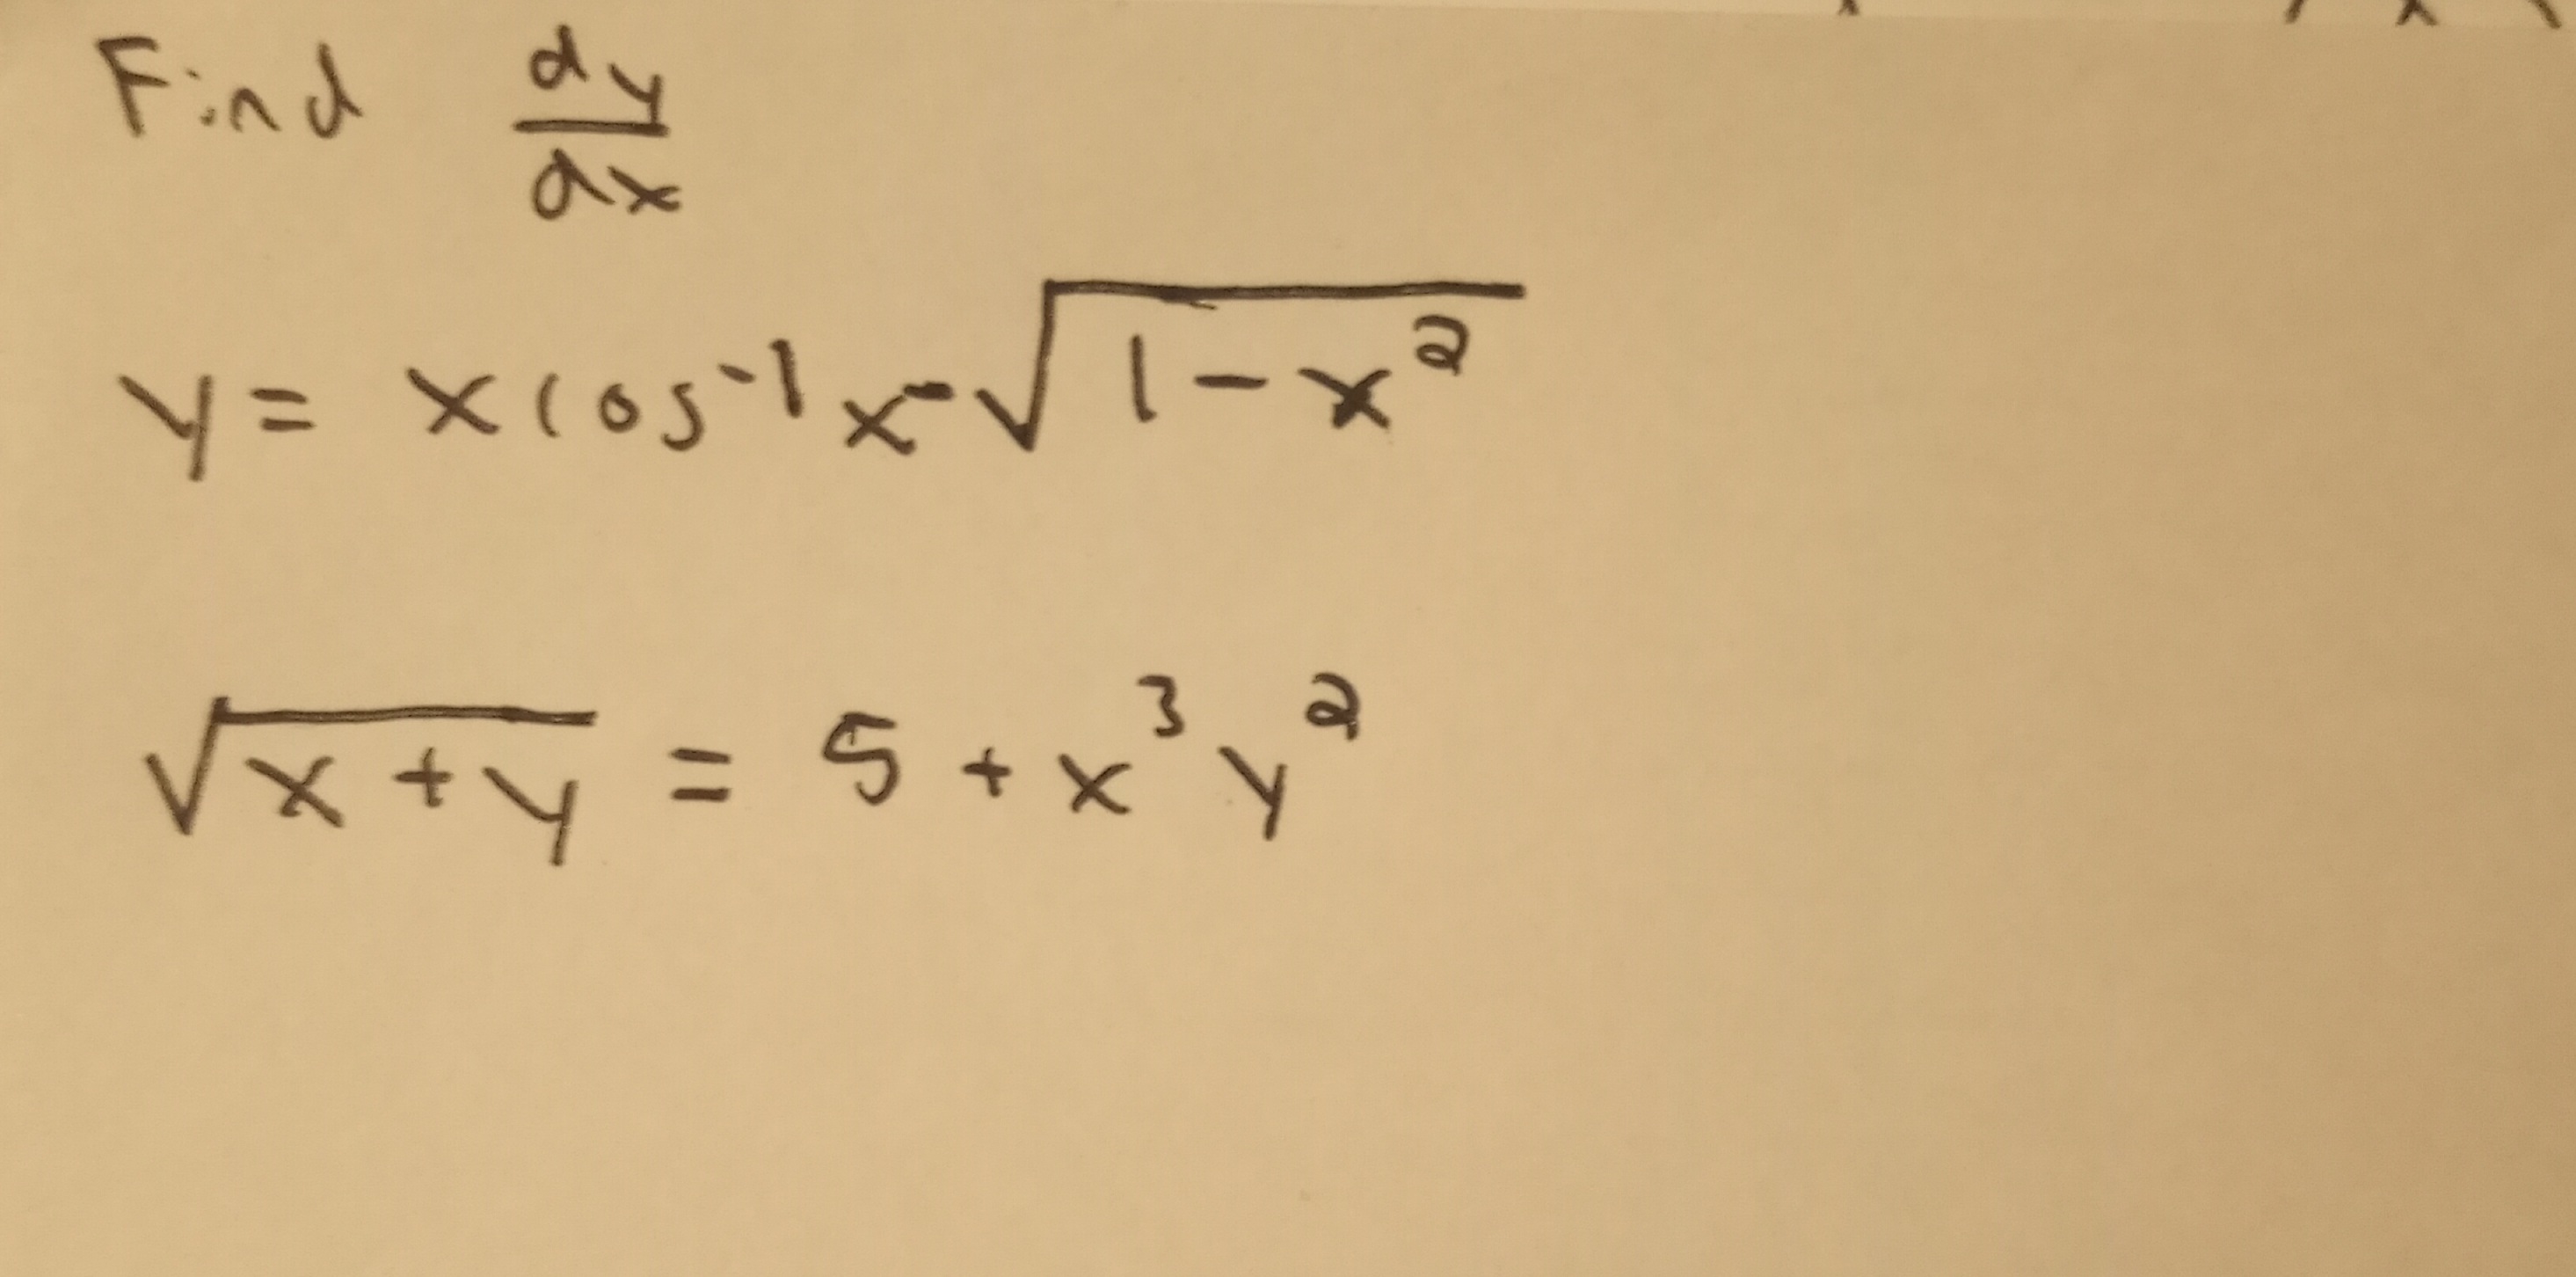 Find dy/dx
y = x cos⁻¹ x - √(1 - x²)
√(x + y) = 5 + x³ y²